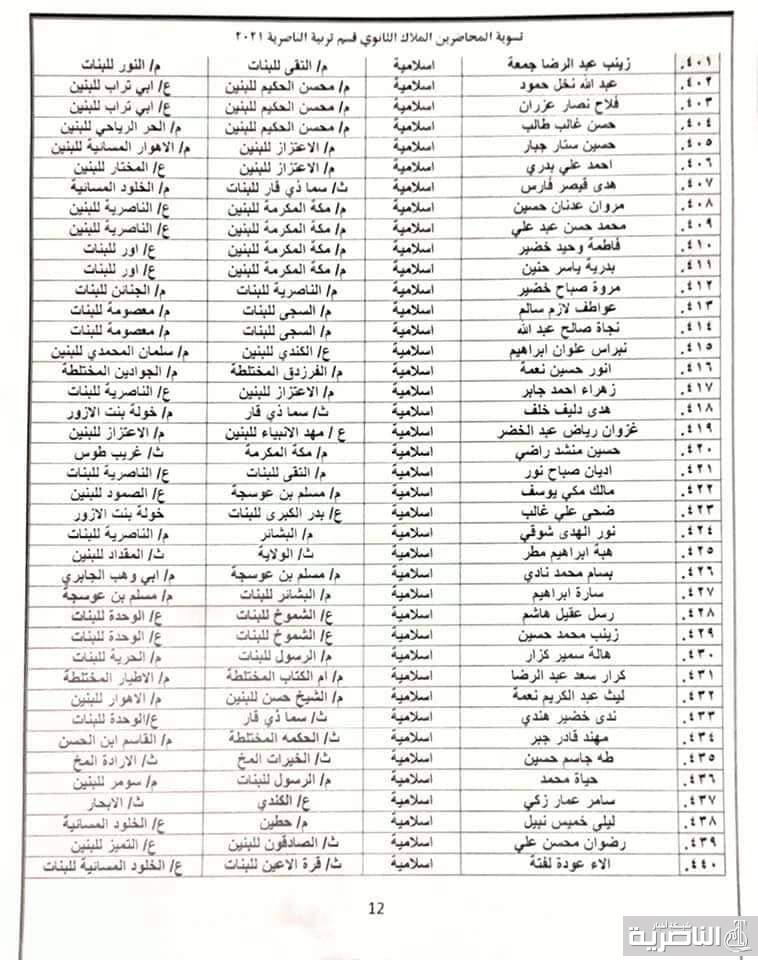 تسوية المحاضرين الملاك الثانوي قسم تربية الناصرية ٢٠٢١
٤٠١. زينب عبد الرضا جمعة اسلامية م/ التقى للبنات م/ النور للبنات
٤٠٢. عبد الله نخل حمود اسلامية م/ محسن الحكيم للبنين ع/ ابي تراب للبنين
٤٠٣. فلاح نصار عزران اسلامية م/ محسن الحكيم للبنين ع/ ابي تراب للبنين
٤٠٤. حسن غالب طالب اسلامية م/ محسن الحكيم للبنين م/ الحر الرياحي للبنين
٤٠٥. حسين ستار جبار اسلامية م/ الاعتزاز للبنين م/ الاهوار المسائية للبنين
٤٠٦. احمد علي بدري اسلامية م/ الاعتزاز للبنين ع/ المختار للبنين
٤٠٧. هدى قيصر فارس اسلامية ث/ سما ذي قار للبنات م/ الخلود المسائية
٤٠٨. مروان عدنان حسين اسلامية م/ مكة المكرمة للبنين ع/ الناصرية للبنين
٤٠٩. محمد حسن عبد علي اسلامية م/ مكة المكرمة للبنين ع/ الناصرية للبنين
٤١٠. فاطمة وحيد خضير اسلامية م/ مكة المكرمة للبنين ع/ اور للبنات
٤١١. بدرية ياسر حنين اسلامية م/ مكة المكرمة للبنين ع/ اور للبنات
٤١٢. مروة صباح خضير اسلامية م/ الناصرية للبنات م/ الجنائن للبنات
٤١٣. عواطف لازم سالم اسلامية م/ السجى للبنات م/ معصومة للبنات
٤١٤. نجاة صالح عبد الله اسلامية م/ السجى للبنات م/ معصومة للبنات
٤١٥. نبراس علوان ابراهيم اسلامية ع/ الكندي للبنين م/ سلمان المحمدي للبنين
٤١٦. انور حسين نعمة اسلامية م/ الفرزدق المختلطة م/ الجوادين المختلطة
٤١٧. زهراء احمد جابر اسلامية م/ الاعتزاز للبنين ع/ الناصرية للبنات
٤١٨. هدى دليف خلف اسلامية ث/ سما ذي قار م/ خولة بنت الازور
٤١٩. غزوان رياض عبد الخضر اسلامية ع / مهد الانبياء للبنين م/ الاعتزاز للبنين
٤٢٠. حسين منشد راضي اسلامية م/ مكة المكرمة ث/ غريب طوس
٤٢١. اديان صباح نور اسلامية م/ التقى للبنات ع/ الناصرية للبنات
٤٢٢. مالك مكي يوسف اسلامية م/ مسلم بن عوسجة ع/ الصمود للبنين
٤٢٣. ضحى علي غالب اسلامية ع/ بدر الكبرى للبنات خولة بنت الازور
٤٢٤. نور الهدى شوقي اسلامية م/ البشائر م/ الناصرية للبنات
٤٢٥. هبة ابراهيم مطر اسلامية ث/ الولاية ث/ المقداد للبنين
٤٢٦. بسام محمد نادي اسلامية م/ مسلم بن عوسجة م/ ابي وهب الجابري
٤٢٧. سارة ابراهيم اسلامية م/ البشائر للبنات م/ مسلم بن عوسجة
٤٢٨. رسل عقيل هاشم اسلامية ع/ الشموخ للبنات ع/ الوحدة للبنات
٤٢٩. زينب محمد حسين اسلامية ع/ الشموخ للبنات ع/ الوحدة للبنات
٤٣٠. هالة سمير كزار اسلامية م/ الرسول للبنات م/ الحرية للبنات
٤٣١. كرار سعد عبد الرضا اسلامية م/ ام الكتاب المختلطة م/ الاطيار المختلطة
٤٣٢. ليث عبد الكريم نعمة اسلامية م/ الشيخ حسن للبنين م/ الاهوار للبنين
٤٣٣. ندى خضير هندي اسلامية ث/ سما ذي قار ع/الوحدة للبنات
٤٣٤. مهند قادر جبر اسلامية ث/ الحكمه المختلطة م/ القاسم ابن الحسن
٤٣٥. طه جاسم حسين اسلامية ث/ الخيرات المخ ث/ الارادة المخ
٤٣٦. حياة محمد اسلامية م/ الرسول للبنات م/ سومر للبنين
٤٣٧. سامر عمار زكي اسلامية ع/ الكندي ث/ الابحار
٤٣٨. ليلى خميس نبيل اسلامية م/ حطين ع/ الخلود المسائية
٤٣٩. رضوان محسن علي اسلامية ث/ الصادقون للبنين ع/ التميز للبنين
٤٤٠. الاء عودة لفتة اسلامية ث/ قرة الاعين للبنات ع/ الخلود المسائية للبنات
12
شبكة اخبار
الناصرية